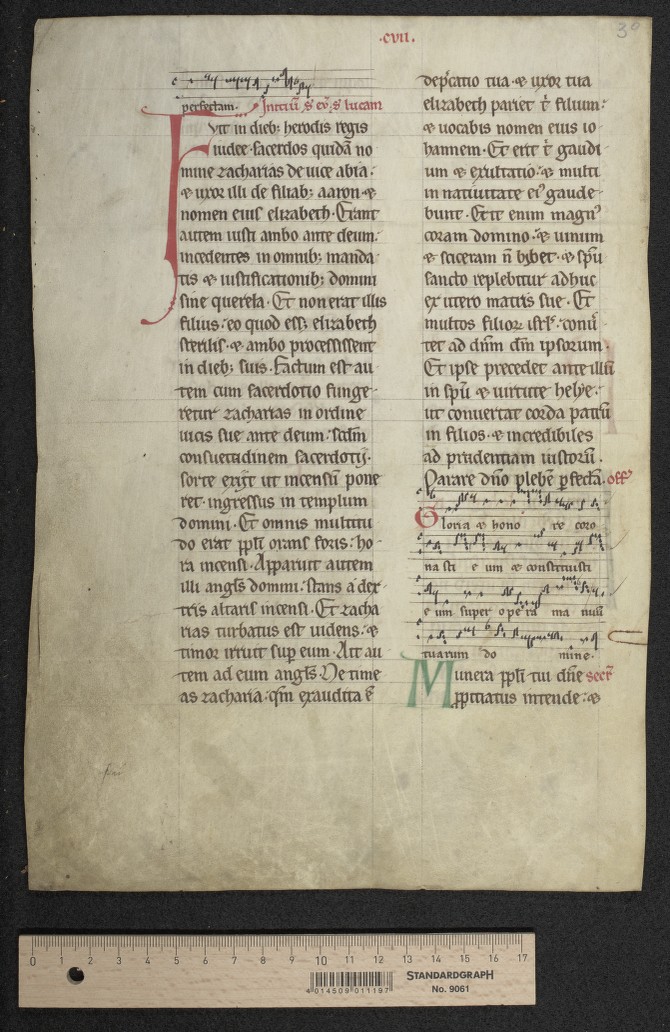 ·CVII·
30
perfectam. Initiū s̄ ev̄. s̄ lucam
Fvit in dieb; herodis regis
iudee sacerdos quidā no
mine zacharias de uice abia.
⁊ uxor illi de filiab; aaron ⁊
nomen eius elizabeth. Erant
autem iusti ambo ante deum.
incedentes in omnib; manda
tis ⁊ iustificationib; domini
sine querela. Et non erat illis
filius. eo quod ess; elizabeth
sterilis. ⁊ ambo processissent
in dieb; suis. Factum est au
tem cum sacerdotio funge
retur zacharias in ordine
uicis sue ante deum. scd̄m
consuetudinem sacerdotij.
sorte exijt ut incensū pone
ret. ingressus in templum
domini. Et omnis multitu
do erat pp̄li orans foris. ho
ra incensi. Apparuit autem
illi angl̄s domini. stans a dex
tris altaris incensi. Et zacha
rias turbatus est uidens. ⁊
timor irruit sup eum. Ait au
tem ad eum angl̄s. Ne time
as zacharia. qm̄ exaudita ē
dep̄catio tua. ⁊ uxor tua
elizabeth pariet t̄ filium.
⁊ uocabis nomen eius io
hannem. Et erit t̄ gaudi
um ⁊ exultatio. ⁊ multi
in natiuitate ei᷒ gaude
bunt. Erit enim magn᷒
coram domino. ⁊ uinum
⁊ siceram n̄ bibet. ⁊ sp̄u
sancto replebitur adhuc
ex utero matris sue. Et
multos filior isrl̄. conū
tet ad dn̄m dm̄ ipsorum.
Et ipse precedet ante illū
in sp̄u ⁊ uirtute helye.
ut conuertat corda patrū
in filios. ⁊ incredibiles
ad prudentiam iustorū.
Parare dn̄o plebē p̄fectā. off᷒
Gloria ⁊ hono re coro
nasti e um ⁊ constituisti
e um super ope ra ma nuū
tuarum do mine.
Munera pp̄li tui dn̄e secr̄
ppitiatus intende. ⁊
0 1 2 3 4 5 6 7 8 9 10 11 12 13 14 15 16 17
4 014509 011197
STANDARDGRAPH
No. 9061